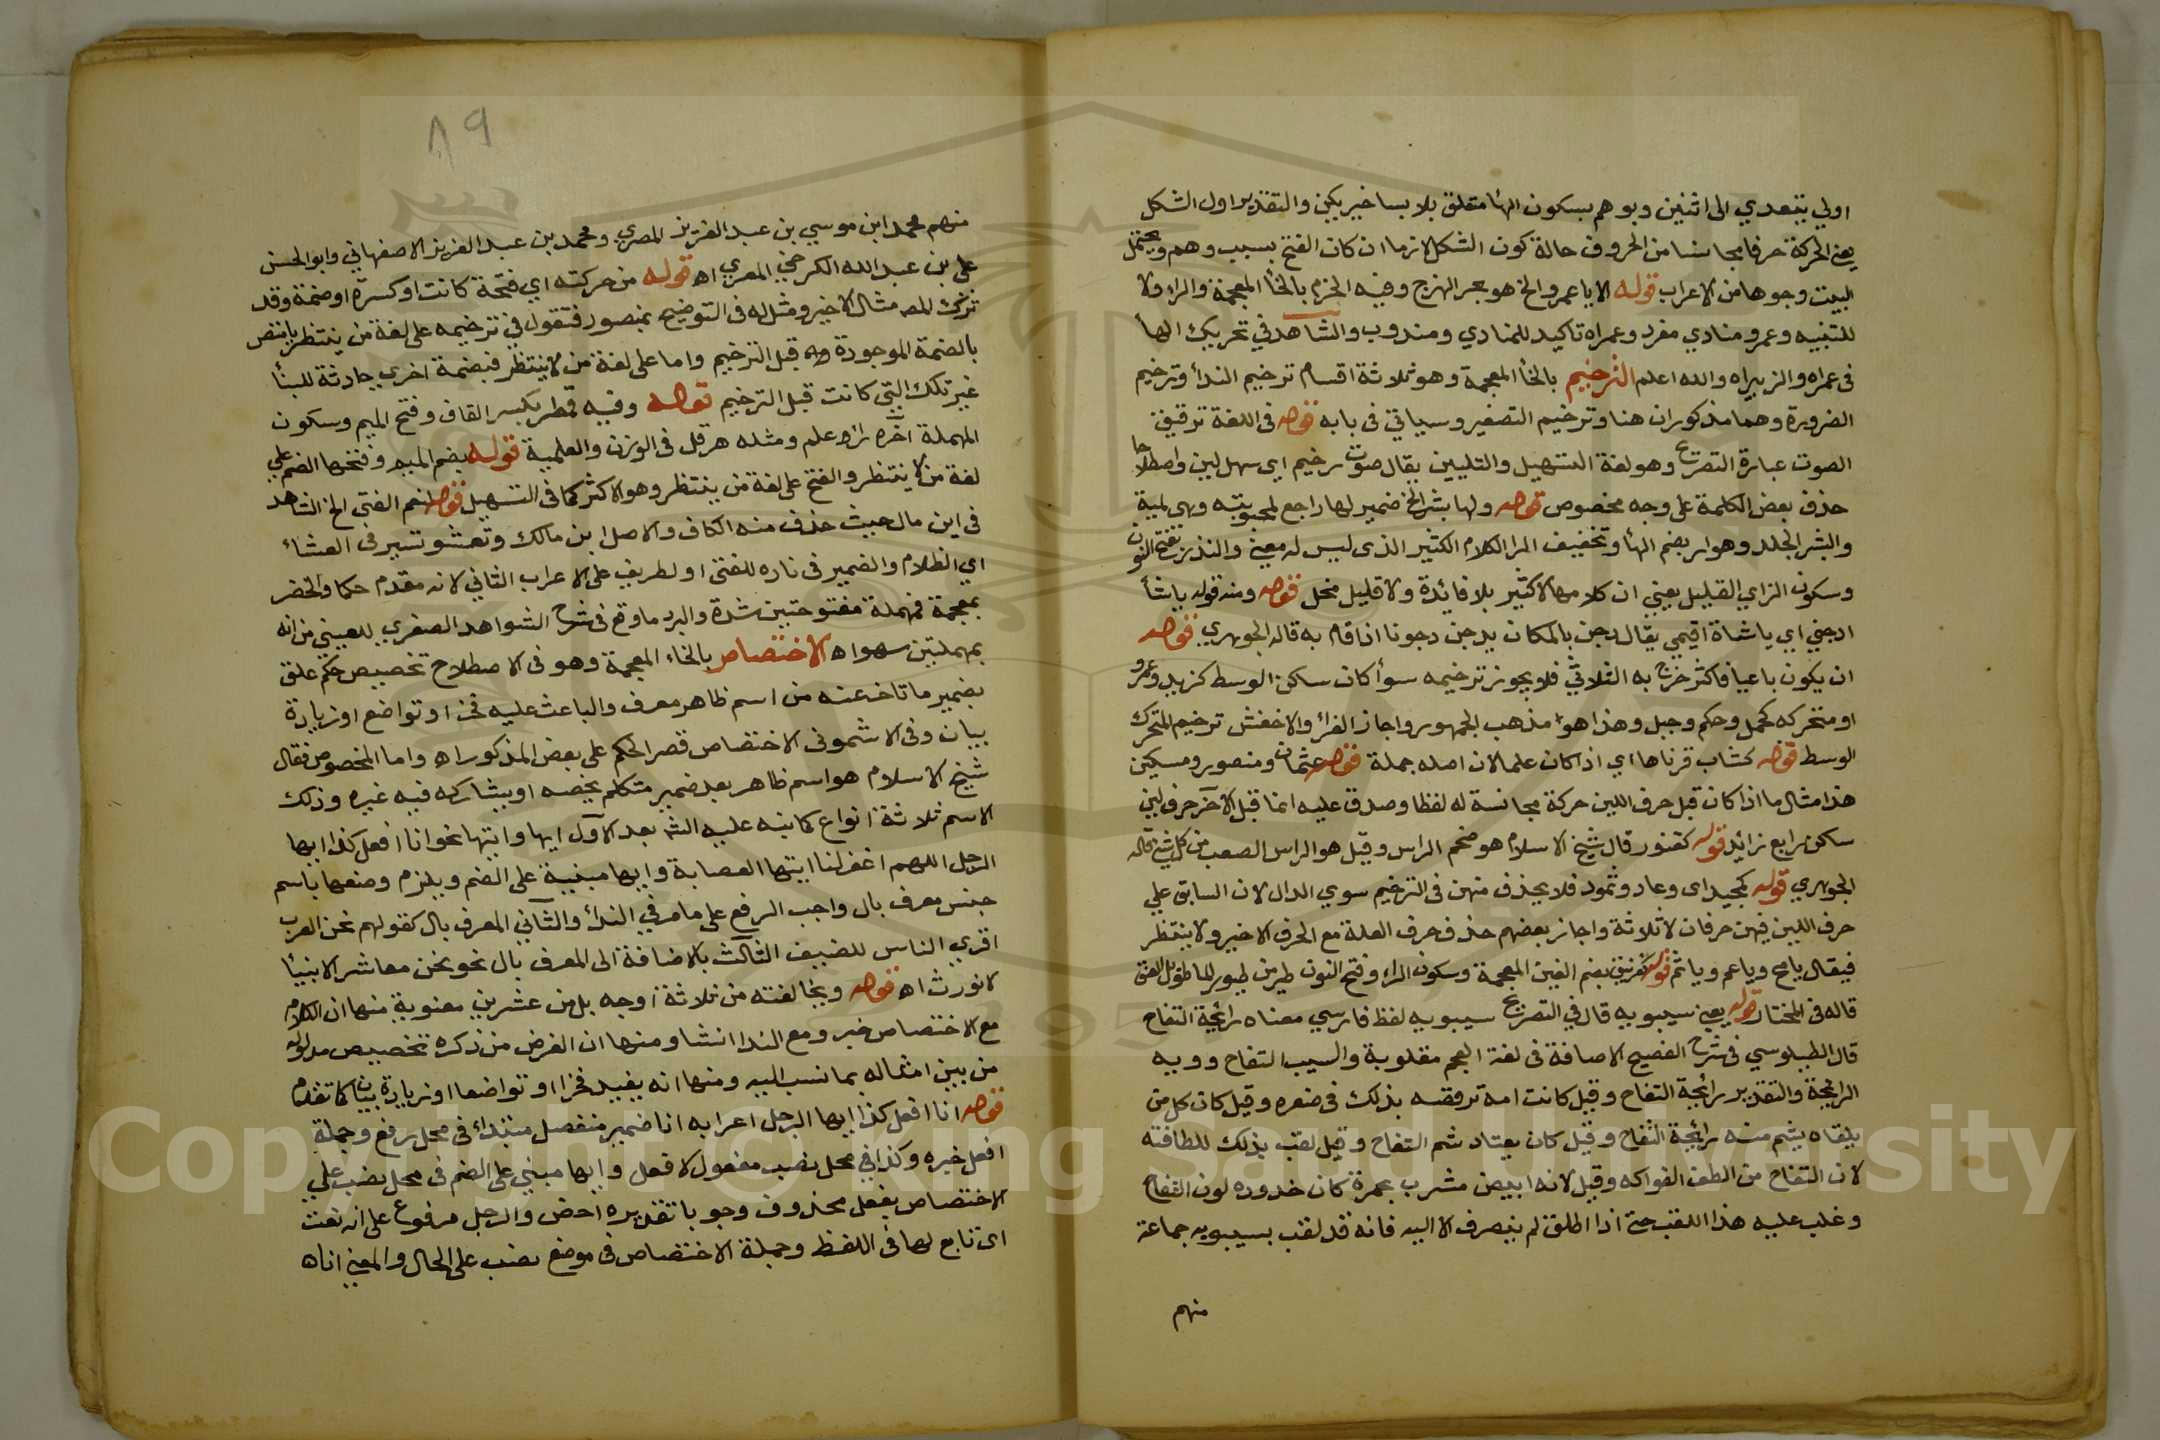 اولي يتعدي الى اثنين وبوهم بسكون الهأ متعلق بلابسا خبر يكن والتقدير اول الشكل
يعني الحركة حرفا مجانسا من الحروف حالة كون الشكل لازما ان كان الفتح بسبب وهم ويحتمل
البيت وجوها من الاعراب قوله الا يا عمرو الخ هو بحر الهزج وفيه الخزم بالخأ المعجمة والزا ولا
للتنبيه وعمرو منادي مفرد وعمراه تاكيد للمنادي ومندوب والشاهد في تحريك الهأ
في عمراه والزبيراه والله اعلم الترخيم بالخأ المعجمة وهو ثلاثة اقسام ترخيم الندأ وترخيم
الضرورة وهما مذكوران هنا وترخيم التصغير وسياتي في بابه قوله في اللغة ترقيق
الصوت عبارة التصريح وهو لغة التسهيل والتليين يقال صوت رخيم اي سهل لين واصطلاحا
حذف بعض الكلمة على وجه مخصوص قوله ولها بشر الخ ضمير لها راجع لمحبوبته وهي لمية
والبشر الجلد وهو اسر بضم الهأ وتخفيف الرا الكلام الكثير الذي ليس له معني والنذر بفتح النون
وسكون الزاي القليل يعني ان كلامها لا كثير بلا فائدة ولا قليل مخل قوله ومنه قوله ياشأ
ادجني اي ياشاة اقيمي يقال دجن بالمكان يدجن دجونا اذا قام به قاله الجوهري قوله
ان يكون رباعيا فاكثر خرج به الثلاثي فلا يجوز ترخيمه سوأ كان ساكن الوسط كزيد وعمرو
او متحركه كحمل وحكم وجبل وهذا هو مذهب الجمهور واجاز الفرأ والاخفش ترخيم المتحرك
الوسط قوله كشاب قرناها اي اذا كان علما لان اصله جملة قوله عثمان ومنصور ومسكين
هذا مثال ما اذا كان قبل حرف اللين حركة مجانسة له لفظا وصدق عليه انما قبل الآخر حرف لين
ساكن رابع زائد قوله كقنور قال شيخ الاسلام هو ضخم الراس وقيل هو الراس الصعب من كل شئ قاله
الجوهري قوله كمجيد اى وعاد وثمود فلا يحذف منهن في الترخيم سوي الدال لان السابق علي
حرف اللين فيهن حرفان لا ثلاثة واجاز بعضهم حذف حرف العلة مع الحرف الاخير ولا ينتظر
فيقال يامج وياعم وياثم قوله كغرنيق بضم الغين المعجمة وسكون الراء وفتح النون طير من طيور الما طويل العنق
قاله في المختار قوله يعني سيبويه قال في التصريح سيبويه لفظ فارسي معناه رائحة التفاح
قال الطبلوسي في شرح الفصيح الاضافة في لغة العجم مقلوبة والسيب التفاح وويه
الرائحة والتقدير رائحة التفاح وقيل كانت امه ترقصه بذلك في صغره وقيل كان كل من
يلقاه يشم منه رائحة التفاح وقيل كان يعتاد شم التفاح وقيل لقب بذلك للطافته
لان التفاح من الطف الفواكه وقيل لانه ابيض مشرب بحمرة كان خدوده لون التفاح
وغلب عليه هذا اللقب حتى اذا اطلق لم ينصرف الا اليه فانه قد لقب بسيبويه جماعة
منهم
٨٩
منهم محمد ابن موسي بن عبد العزيز المصري ومحمد بن عبد العزيز الاصفهاني وابو الحسن
على بن عبد الله الكرخي المعري اه قوله من حركته اي فتحة كانت او كسرة او ضمة وقد
ترك المص مثال الاخير ومثل له في التوضيح بمنصور فتقول في ترخيمه على لغة من ينتظر يا منص
بالضمة الموجودة قبل الترخيم واما على لغة من لا ينتظر فبضمة اخري حادثة للبنأ
غير تلك التي كانت قبل الترخيم قوله وفيه قمطر بكسر القاف وفتح الميم وسكون
المهملة اخره را وعلم ومثله هرقل في الوزن والعلمية قوله بضم الميم وفتحها الضم علي
لغة من لا ينتظر والفتح على لغة من ينتظر وهو الاكثر كما في التسهيل قوله لنعم الفتى الخ الشاهد
في ابن مال حيث حذف منه الكاف والاصل ابن مالك وتعشو تسير في العشاء
اي الظلام والضمير في ناره للفتى او لطريف على الاعراب الثاني لانه مقدم حكما والخصر
بمعجمة فمهملة مفتوحتين شدة والبرد ما وقع في شرح الشواهد الصغري للعيني من انه
بمهملتين سهو اه الاختصاص بالخاء المعجمة وهو في الاصطلاح تخصيص حكم علق
بضمير ما تاخر عنه من اسم ظاهر معرف والباعث عليه فخر او تواضع او زيادة
بيان وفي الاشموني الاختصاص قصر الحكم على بعض المذكور اه واما المخصوص فقال
شيخ الاسلام هو اسم ظاهر بعد ضمير متكلم يخصه او يشاركه فيه غيره وذلك
الاسم ثلاثة انواع كما نبه عليه الش بعد الاول ايها وايتها نحو انا افعل كذا ايها
الرجل اللهم اغفر لنا ايتها العصابة وايها مبنية على الضم ويلزم وصفها باسم
جنس معرف بال واجب الرفع على ما مر في الندأ والثاني المعرف بال كقولهم نحن العرب
اقري الناس للضيف الثالث بالاضافة الى المعرف بال نحو نحن معاشر الانبيأ
لا نورث اه قوله ويخالفته من ثلاثة اوجه بل من عشرين معنوية منها ان الكلام
مع الاختصاص خبر ومع الندا انشا ومنها ان الغرض من ذكره تخصيص مدلوله
من بين امثاله بما نسب اليه ومنها انه يفيد فخرا او تواضعا او زيادة بيان كما تقدم
قوله انا افعل كذا ايها الرجل اعرابه انا ضمير منفصل مبتدأ في محل رفع وجملة
افعل خبره وكذا في محل نصب مفعول لافعل وايها مبني على الضم في محل نصب على
الاختصاص بفعل محذوف وجوبا تقديره اخص والرجل مرفوع على انه نعت
اي تابع لها في اللفظ وجملة الاختصاص في موضع نصب على الحال والمعني انا اه
Copyright © King Saud University